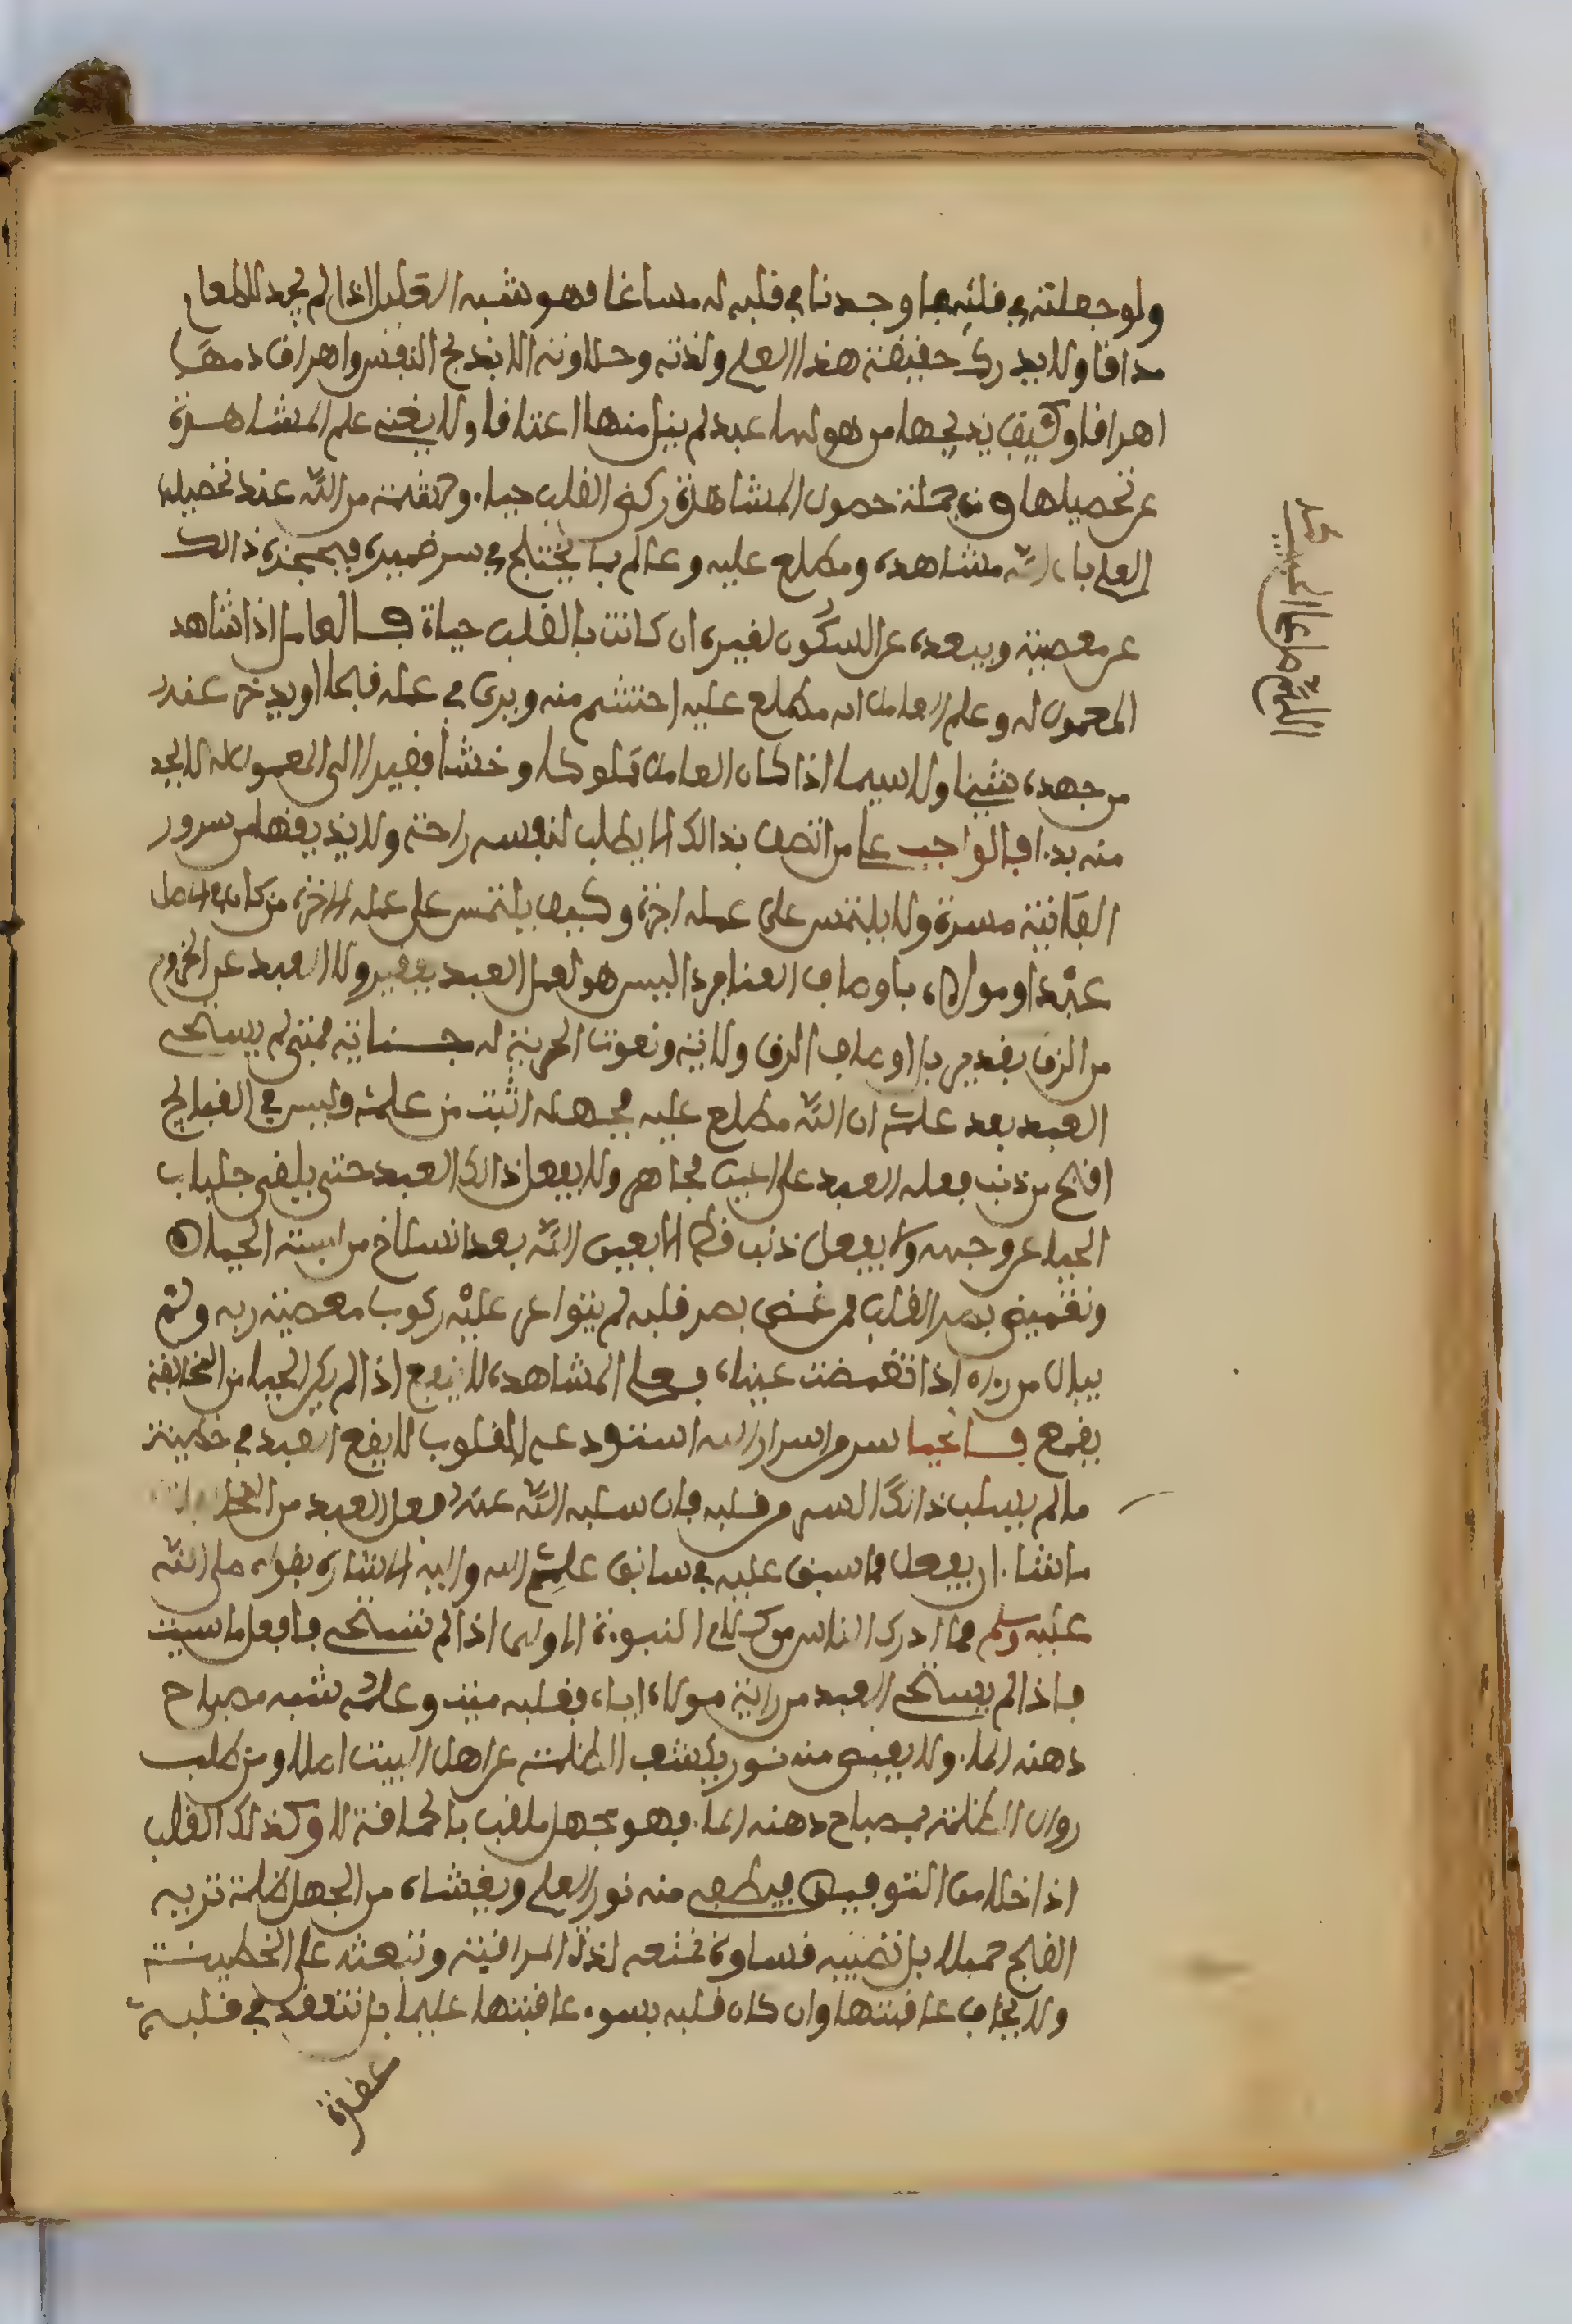 ولو جعلته في قلبه ما وجدنا في قلبه له مساغا فهو شبه العليل اذا لم يجد للطعام
مذاقا ولا يدرك حقيقة هذا العلم ولذته وحلاوته الا بذبح النفس واهراق دمها
اهراقا وكيف يذبحها من هو لها عبد لم ينل منها اعتاقا ولا يغني علم المشاهدة
عن تحصيلها ومن جملة حصول المشاهدة ركني القلب حياء وحشمة من الله عند تحصيله
العلم بان الله مشاهده ومطلع عليه وعالم بما يختلج في سر ضميره فيحجزه ذالك
عن معصيته ويبعده عن السكون لغيره ان كانت بالقلب حياة فالعامل اذا شاهد
المعمول له وعلم العامل انه مطلع عليه احتشم منه ويرى في عمله فلما او يدخر عنده
من جهده شيئا ولاسيما اذا كان العامل مملوكا وخشا فقيرا الى المعمول له لا يجد
منه بدا فالواجب على من اتصف بذالك الا يطلب لنفسه راحة ولا يذيقها من سرور
الفانية مسرة ولا يلتمس على عمله اجرة وكيف يلتمس على عمله الاخرة من كان
عبدا ومولاه باوصاف الغنا مرد اليس هو لعمل العبد بفقير ولا العبد عن الخروج
من الرق بقدير باوصاف الرق ولايته ونعوت الحرية له جنايته فمتى لم يستحي
العبد بعد علمه ان الله مطلع عليه فجهله اثبت من علمه وليس في القبائح
اقبح من ذنب فعله العبد على الغيب مجاهر ولا يفعل ذالك العبد حتى يلقى جلباب
الحيا عن وجهه ولا يفعل ذنب قط الا بعين الله بعد انسلاخ من البسة الحياء
وتغميض بصر القلب فمن غمض بصر قلبه لم يتوا عن عليه ركوب معصية ربه ولم
يبال من يراه اذا تغمضت عيناه فعلم المشاهدة لا ينفع اذا لم يكن الحيا من المخالفة
يقمع فالحيا سر من اسرار الله استودعه القلوب لا يقع العبد في خطيئة
ما لم يسلب ذالك السر من قلبه فان سلبه الله عنه فعل العبد من
ما شاء ان يفعل مما سبق عليه في سابق علم الله واليه الاشارة بقوله صلى الله
عليه وسلم مما ادرك الناس من كلام النبوة الاولى اذا لم تستحي فافعل ما شيت
فاذا لم يستحي العبد من رؤية مولاه اياه فقلبه ميت وعلمه شبه مصباح
دهنه الما ولا يغني منه نور يكشف الظلمة عن اهل البيت املا ومن طلب
زوال الظلمة بمصباح دهنه الما فهو بجهل ملقب بالحماقة لا وكذلك القلب
اذا خلا من التوفيق فيطفى منه نور العلم ويغشاه من الجهل ظلمة تريه
القبائح جميلا بل تصيبه قساوة تمنعه لذة المراقبة وتبعثه على الخطيئة
ولا يخاف عاقبتها وان كان قلبه بسوء عاقبتها عليما بل تنعقد في قلبه
عقدة
اللهم صل على الحبيب محمد